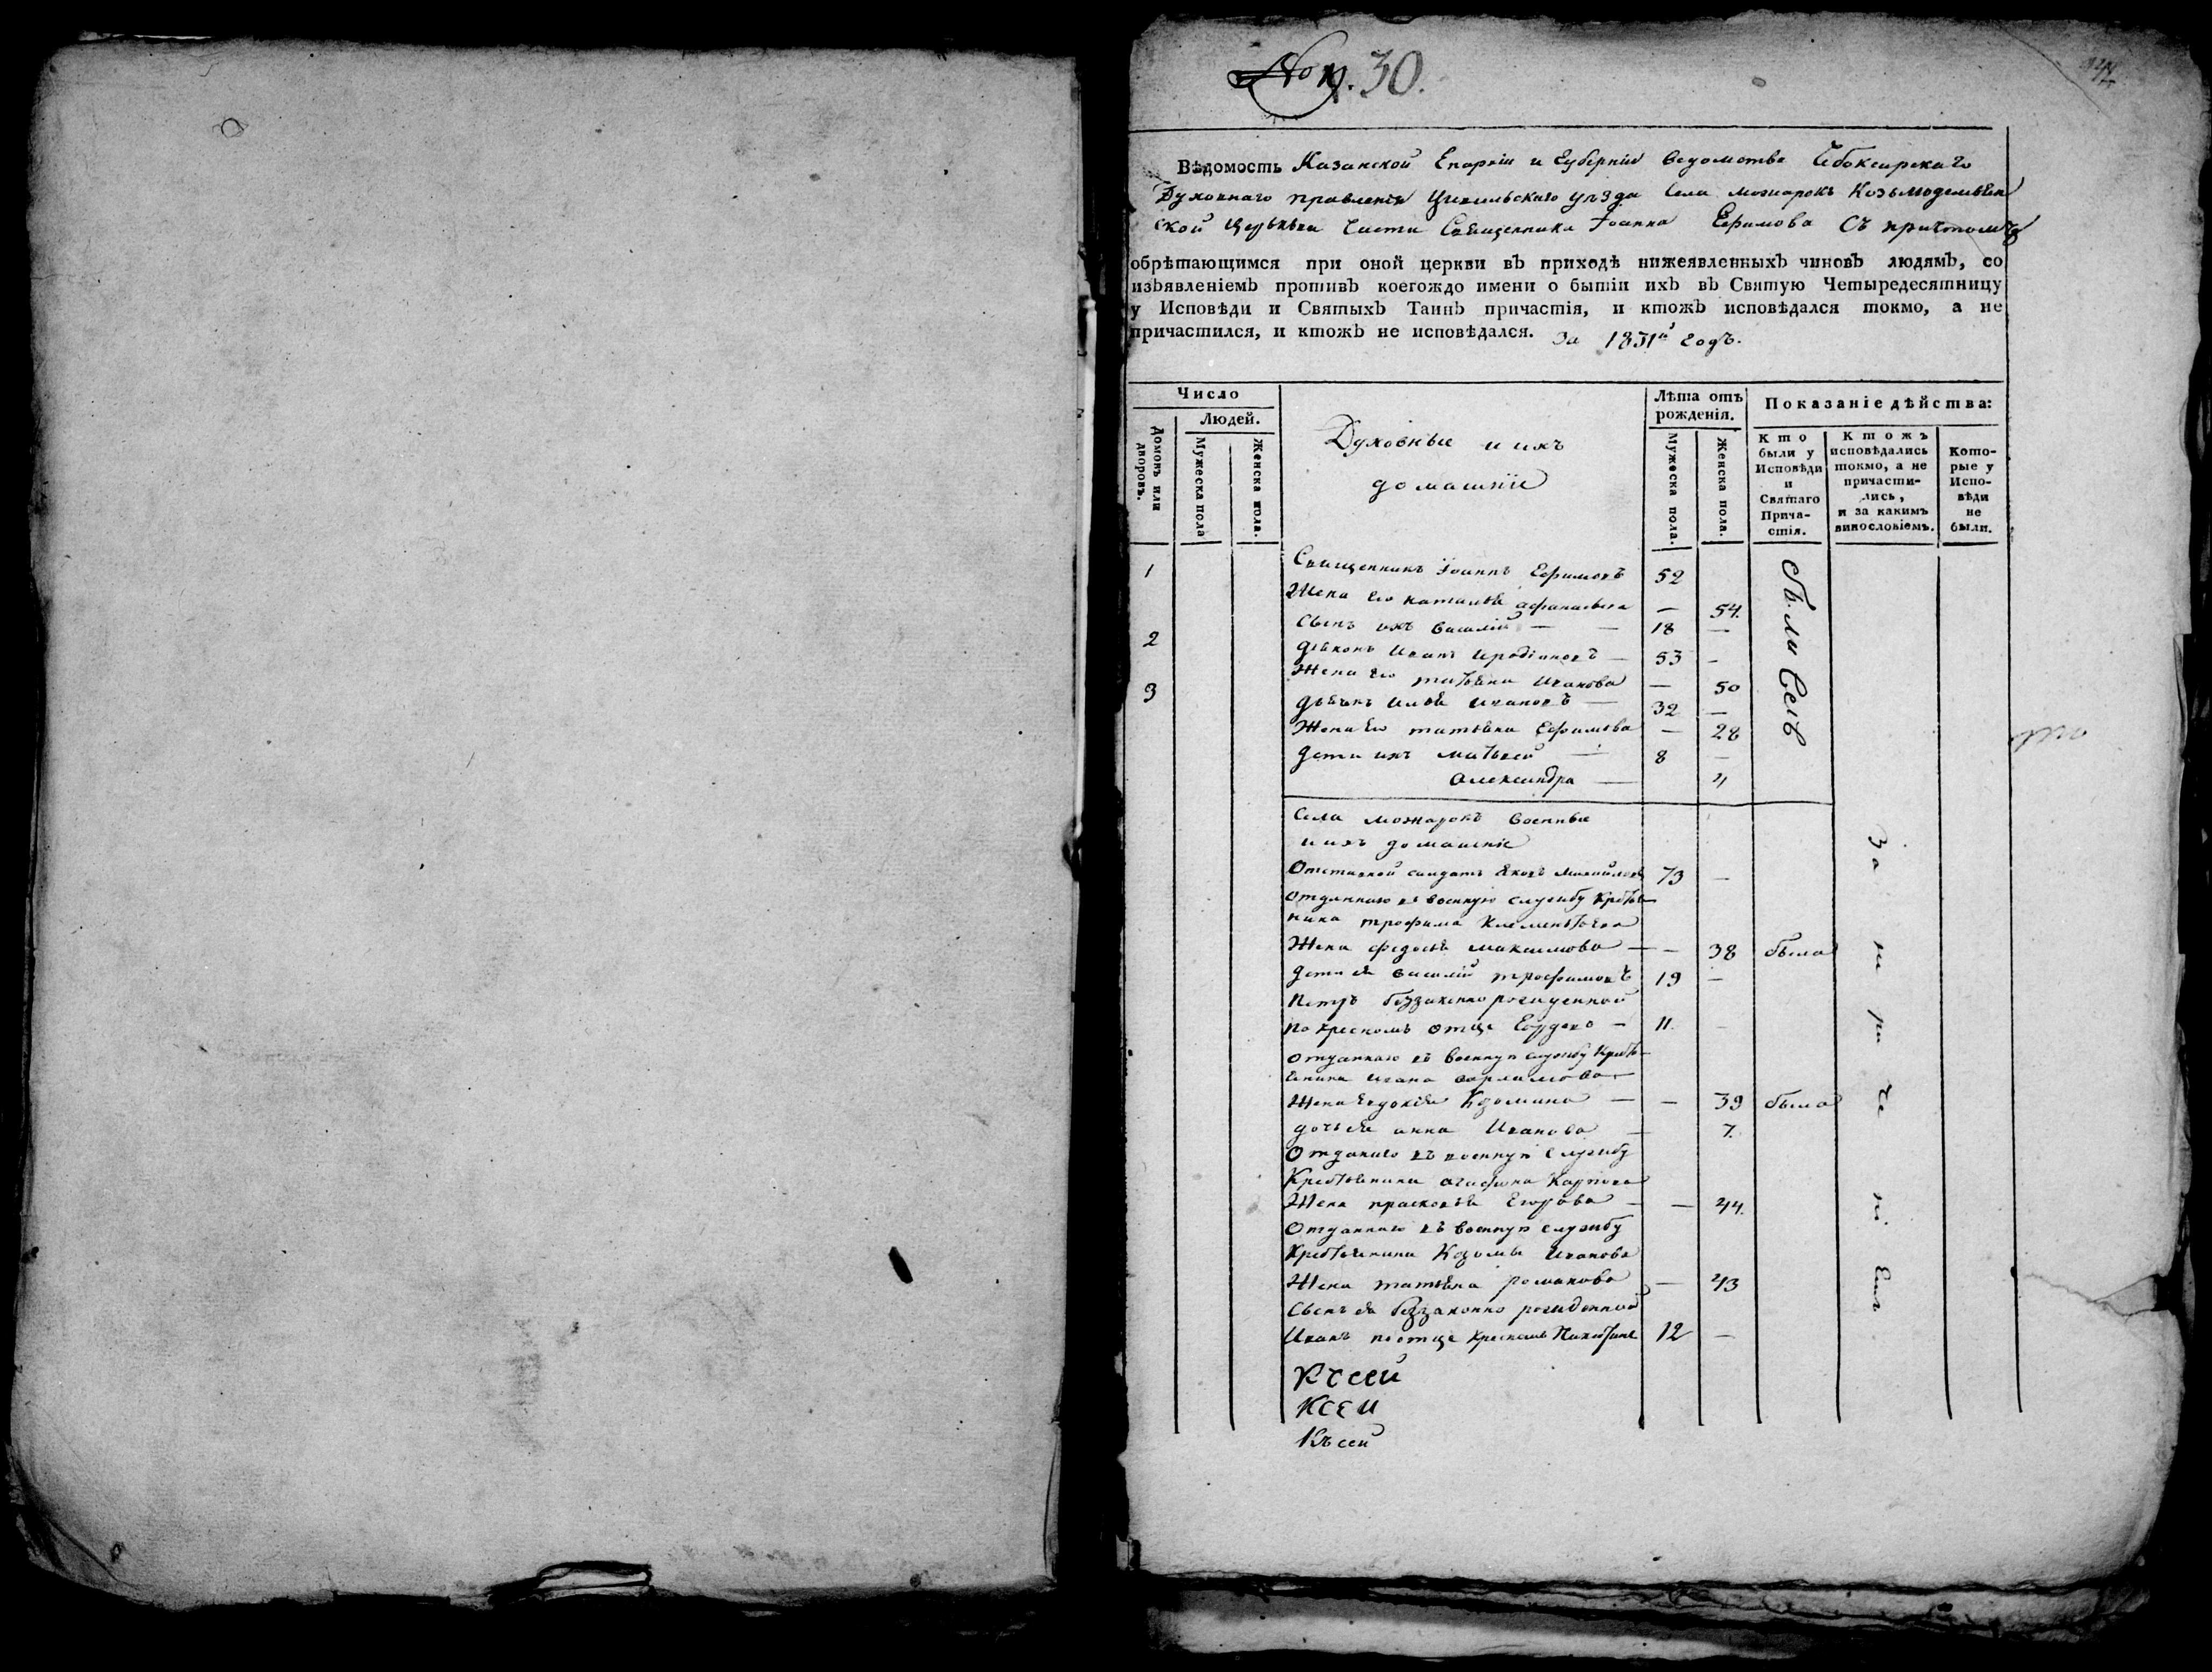 30.
Вѣдомость Казанской Епархіи и Губерніи ведомства Чебоксирскаго
Духовнаго правленія Цивильскаго уѣзда Села можарокъ Козьмодемьян
ской Церькви части Священника Іоанна Ефимова Съ притчомъ
обрѣтающимся при оной церкви въ приходѣ нижеявленныхъ чиновъ людямъ, со
изъявленіемъ противъ коегождо имени о бытіи ихъ въ Святую Четыредесятницу
у Исповѣди и Святыхъ Таинъ причастія, и ктожъ исповѣдался токмо, а не
причастился, и ктожъ не исповѣдался. За 1831й годъ.
Число
Людей.
Домовъ или дворовъ.
Мужеска пола
Женска пола.
Духовные и ихъ
домашніе
Лѣта отъ рожденія.
Мужеска пола.
Женска пола.
Показаніе дѣйства:
Кто были у Исповѣди и Святаго Прича-стія.
Ктожъ исповѣдались токмо, а не причасти-лись, и за какимъ винословіемъ.
Кото-рые у Испо-вѣди не были.
1 Священникъ Іоаннъ Ефимовъ 52
Жена его наталья афанасьева — 54.
Сынъ ихъ василій — — 18 —
2 дьяконъ Иванъ Иродіоновъ — 53 -
Жена его татьяна Иванова — 50
3 дьячекъ илья ивановъ — 32 —
Жена его татьяна Ефимова — 28
дети ихъ матвей — 8 —
Александра — 4
были Себѣ
Села можарокъ военные
и ихъ домашніе
Отставной салдатъ яковъ михайловъ 73 —
отданнаго въ военную службу крестья
нина трофима Клементьева
Жена федосья максимова — — 38 была
дети ея василій трофимовъ 19 —
петръ беззаконно рожденной
по крескомъ отце — 11. -
отданнаго въ военную службу крестья
янина ивана варламова —
Жена Евдокія Козмина — — 39 была
дочь ея анна Иванова — 7.
Отданаго въ военную службу
Крестьянина агафона Карпова
Жена прасковья Егорова — — 44.
Отданнаго въ военную службу
Крестьянина Козмы Иванова
Жена татьяна романова — 43
Сынъ ея беззаконно рожденной
Иванъ по отце крескомъ 12 —
За
Къ сей